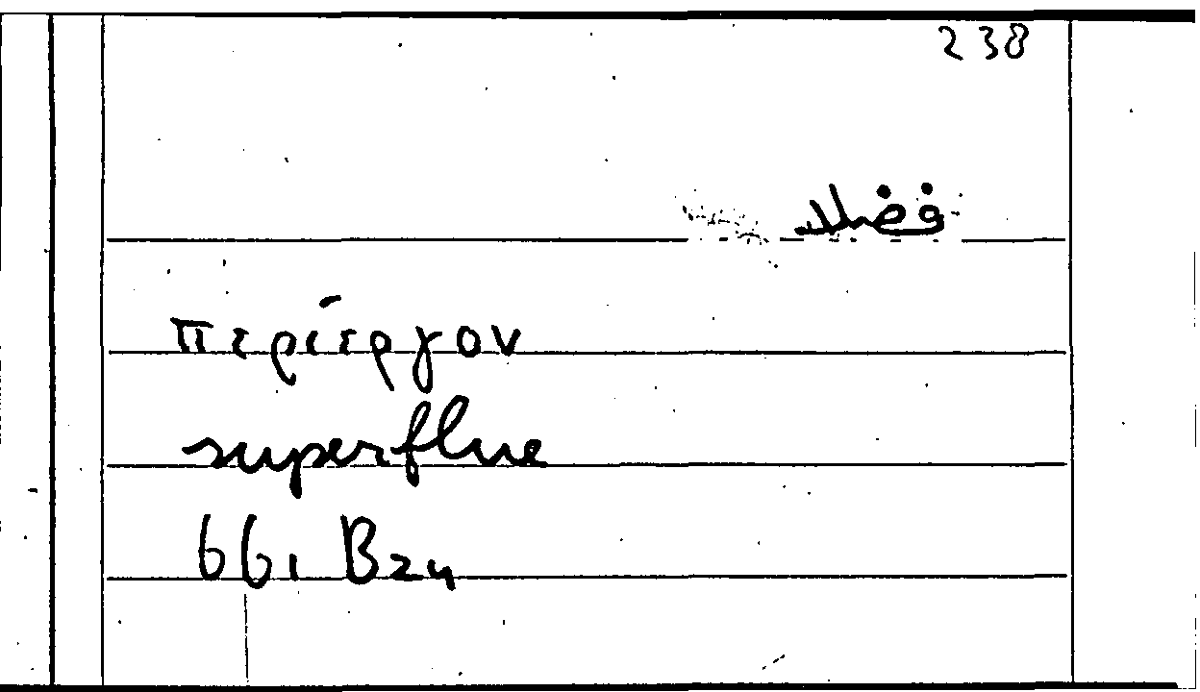 238
فضلا
περίεργον
superflue
661 B24